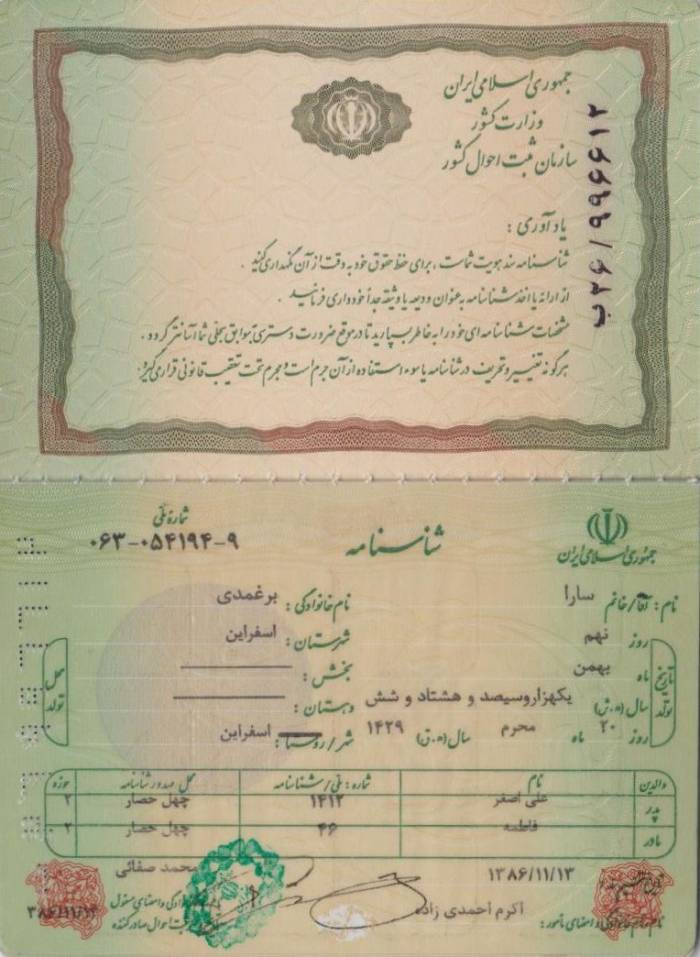 جمهوری اسلامی ایران
وزارت کشور
سازمان ثبت احوال کشور
ب۲۶/۹۹۶۶۱۲
یادآوری :
شناسنامه سند هویت شماست ، برای حفظ حقوق خود به دقت از آن نگهداری کنید .
از ارائه یا اخذ شناسنامه به عنوان ودیعه یا وثیقه جداً خودداری فرمائید .
مشخصات شناسنامه ای خود را به خاطر بسپارید تا در موقع ضرورت دسترسی به سوابق سجلی شما آسانتر گردد .
هرگونه تغییر و تحریف در شناسنامه یا سوء استفاده از آن جرم است و مجرم تحت تعقیب قانونی قرار می گیرد .
جمهوری اسلامی ایران
شناسنامه
شماره ملی
۰۶۳-۰۵۴۱۹۴-۹
نام : آقا/خانم سارا
نام خانوادگی : برغمدی
تاریخ تولد
روز نهم
ماه بهمن
سال (ه.ش) یکهزاروسیصد و هشتاد و شش
روز ۲۰ ماه محرم سال (ه.ق) ۱۴۲۹
محل تولد
شهرستان : اسفراین
بخش :
دهستان :
شهر/روستا : اسفراین
والدین نام شماره : ملی/شناسنامه محل صدور شناسنامه حوزه
پدر علی اصغر ۱۴۱۲ چهل حصار ۲
مادر فاطمه ۴۶ چهل حصار ۲
۱۳۸۶/۱۱/۱۳
محمد صفائی
نام و نام خانوادگی و امضای مأمور : اکرم احمدی زاده